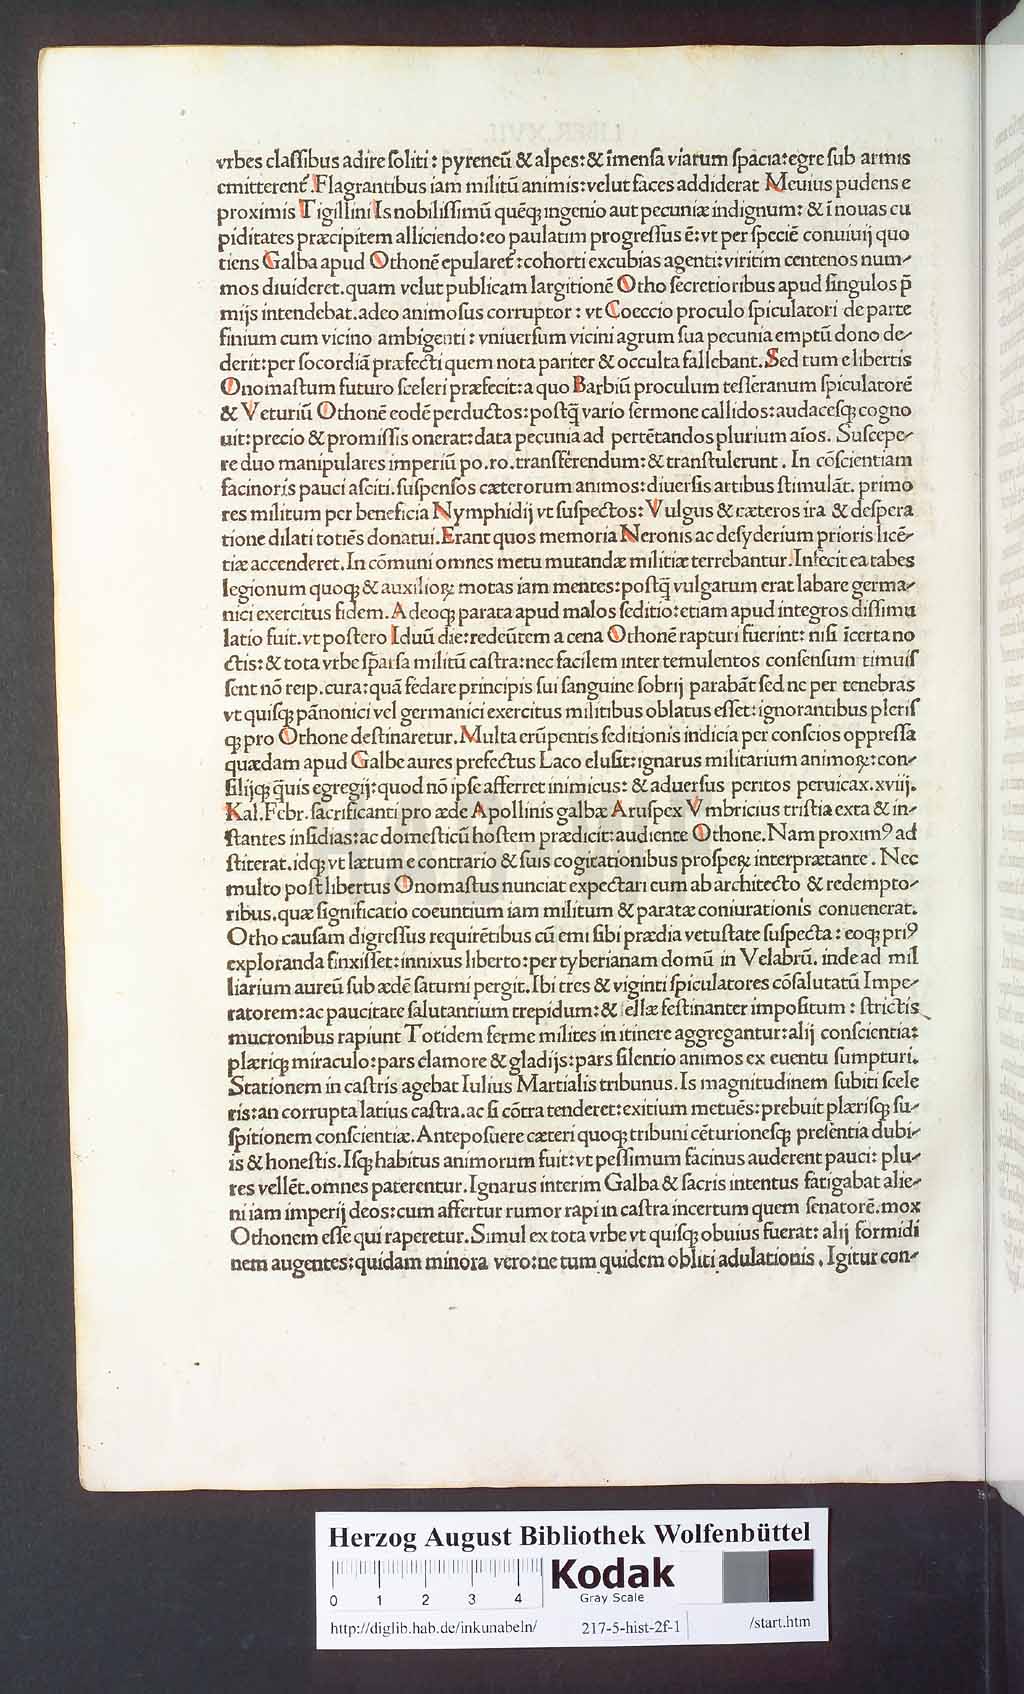 vrbes classibus adire soliti: pyreneū & alpes: & īmensa viarum spacia: egre sub armis
emitterent᷑. Flagrantibus iam militū animis: velut faces addiderat Meuius pudens e
proximis Tigillini Is nobilissimū quēqꝫ ingenio aut pecuniæ indignum: & ī nouas cu
piditates præcipitem alliciendo: eo paulatim progressus ē: vt per speciē conuiuij quo
tiens Galba apud Othonē epularet᷑: cohorti excubias agenti: viritim centenos num-
mos diuideret. quam velut publicam largitionē Otho secretioribus apud singulos p̄
mijs intendebat. adeo animosus corruptor: vt Coeccio proculo spiculatori de parte
finium cum vicino ambigenti: vniuersum vicini agrum sua pecunia emptū dono de-
derit: per socordiā præfecti quem nota pariter & occulta fallebant. Sed tum e libertis
Onomastum futuro sceleri præfecit: a quo Barbiū proculum tesseranum spiculatorē
& Veturiū Othonē eodē perductos: postq̄ vario sermone callidos: audacesqꝫ cogno
uit: precio & promissis onerat: data pecunia ad pertētandos plurium aīos. Suscepe-
re duo manipulares imperiū po. ro. transferendum: & transtulerunt. In cōscientiam
facinoris pauci asciti. suspensos cæterorum animos: diuersis artibus stimulāt. primo
res militum per beneficia Nymphidij vt suspectos: Vulgus & cæteros ira & despera
tione dilati totiēs donatui. Erant quos memoria Neronis ac desyderium prioris licē-
tiæ accenderet. In cōmuni omnes metu mutandæ militiæ terrebantur. Infecit ea tabes
legionum quoqꝫ & auxilioꝝ motas iam mentes: postq̄ vulgatum erat labare germa-
nici exercitus fidem. Adeoqꝫ parata apud malos seditio: etiam apud integros dissimu
latio fuit. vt postero Iduū die: redeūtem a cena Othonē rapturi fuerint: nisi īcerta no
ctis: & tota vrbe sparsa militū castra: nec facilem inter temulentos consensum timuis
sent nō reip. cura: quā fedare principis sui sanguine sobrij parabāt sed ne per tenebras
vt quisqꝫ pānonici vel germanici exercitus militibus oblatus esset: ignorantibus pleris
qꝫ pro Othone destinaretur. Multa erūpentis seditionis indicia per conscios oppressa
quædam apud Galbe aures prefectus Laco elusit: ignarus militarium animoꝝ: con-
silijqꝫ q̄uis egregij: quod nō ipse afferret inimicus: & aduersus peritos peruicax. xviij.
Kal. Febr. sacrificanti pro æde Apollinis galbæ Aruspex Vmbricius tristia exta & in-
stantes insidias: ac domesticū hostem prædicit: audiente Othone. Nam proximꝰ ad
stiterat. idqꝫ vt lætum e contrario & suis cogitationibus prospeꝝ interprætante. Nec
multo post libertus Onomastus nunciat expectari eum ab architecto & redempto-
ribus. quæ significatio coeuntium iam militum & paratæ coniurationis conuenerat.
Otho causam digressus requirētibus cū emi sibi prædia vetustate suspecta: eoqꝫ priꝰ
exploranda finxisset: innixus liberto: per tyberianam domū in Velabrū. inde ad mil
liarium aureū sub ædē saturni pergit. Ibi tres & viginti spiculatores cōsalutatū Impe-
ratorem: ac paucitate salutantium trepidum: & sellæ festinanter impositum: strictis
mucronibus rapiunt Totidem ferme milites in itinere aggregantur: alij conscientia:
plæriqꝫ miraculo: pars clamore & gladijs: pars silentio animos ex euentu sumpturi.
Stationem in castris agebat Iulius Martialis tribunus. Is magnitudinem subiti scele
ris: an corrupta latius castra. ac si cōtra tenderet: exitium metuēs: prebuit plærisqꝫ su-
spitionem conscientiæ. Anteposuere cæteri quoqꝫ tribuni cēturionesqꝫ presentia dubi-
is & honestis. Isqꝫ habitus animorum fuit: vt pessimum facinus auderent pauci: plu-
res vellēt. omnes paterentur. Ignarus interim Galba & sacris intentus fatigabat alie-
ni iam imperij deos: cum affertur rumor rapi in castra incertum quem senatorē. mox
Othonem esse qui raperetur. Simul ex tota vrbe vt quisqꝫ obuius fuerat: alij formidi
nem augentes: quidam minora vero: ne tum quidem obliti adulationis. Igitur con-
Herzog August Bibliothek Wolfenbüttel
0 1 2 3 4
Kodak
Gray Scale
http://diglib.hab.de/inkunabeln/ 217-5-hist-2f-1 /start.htm